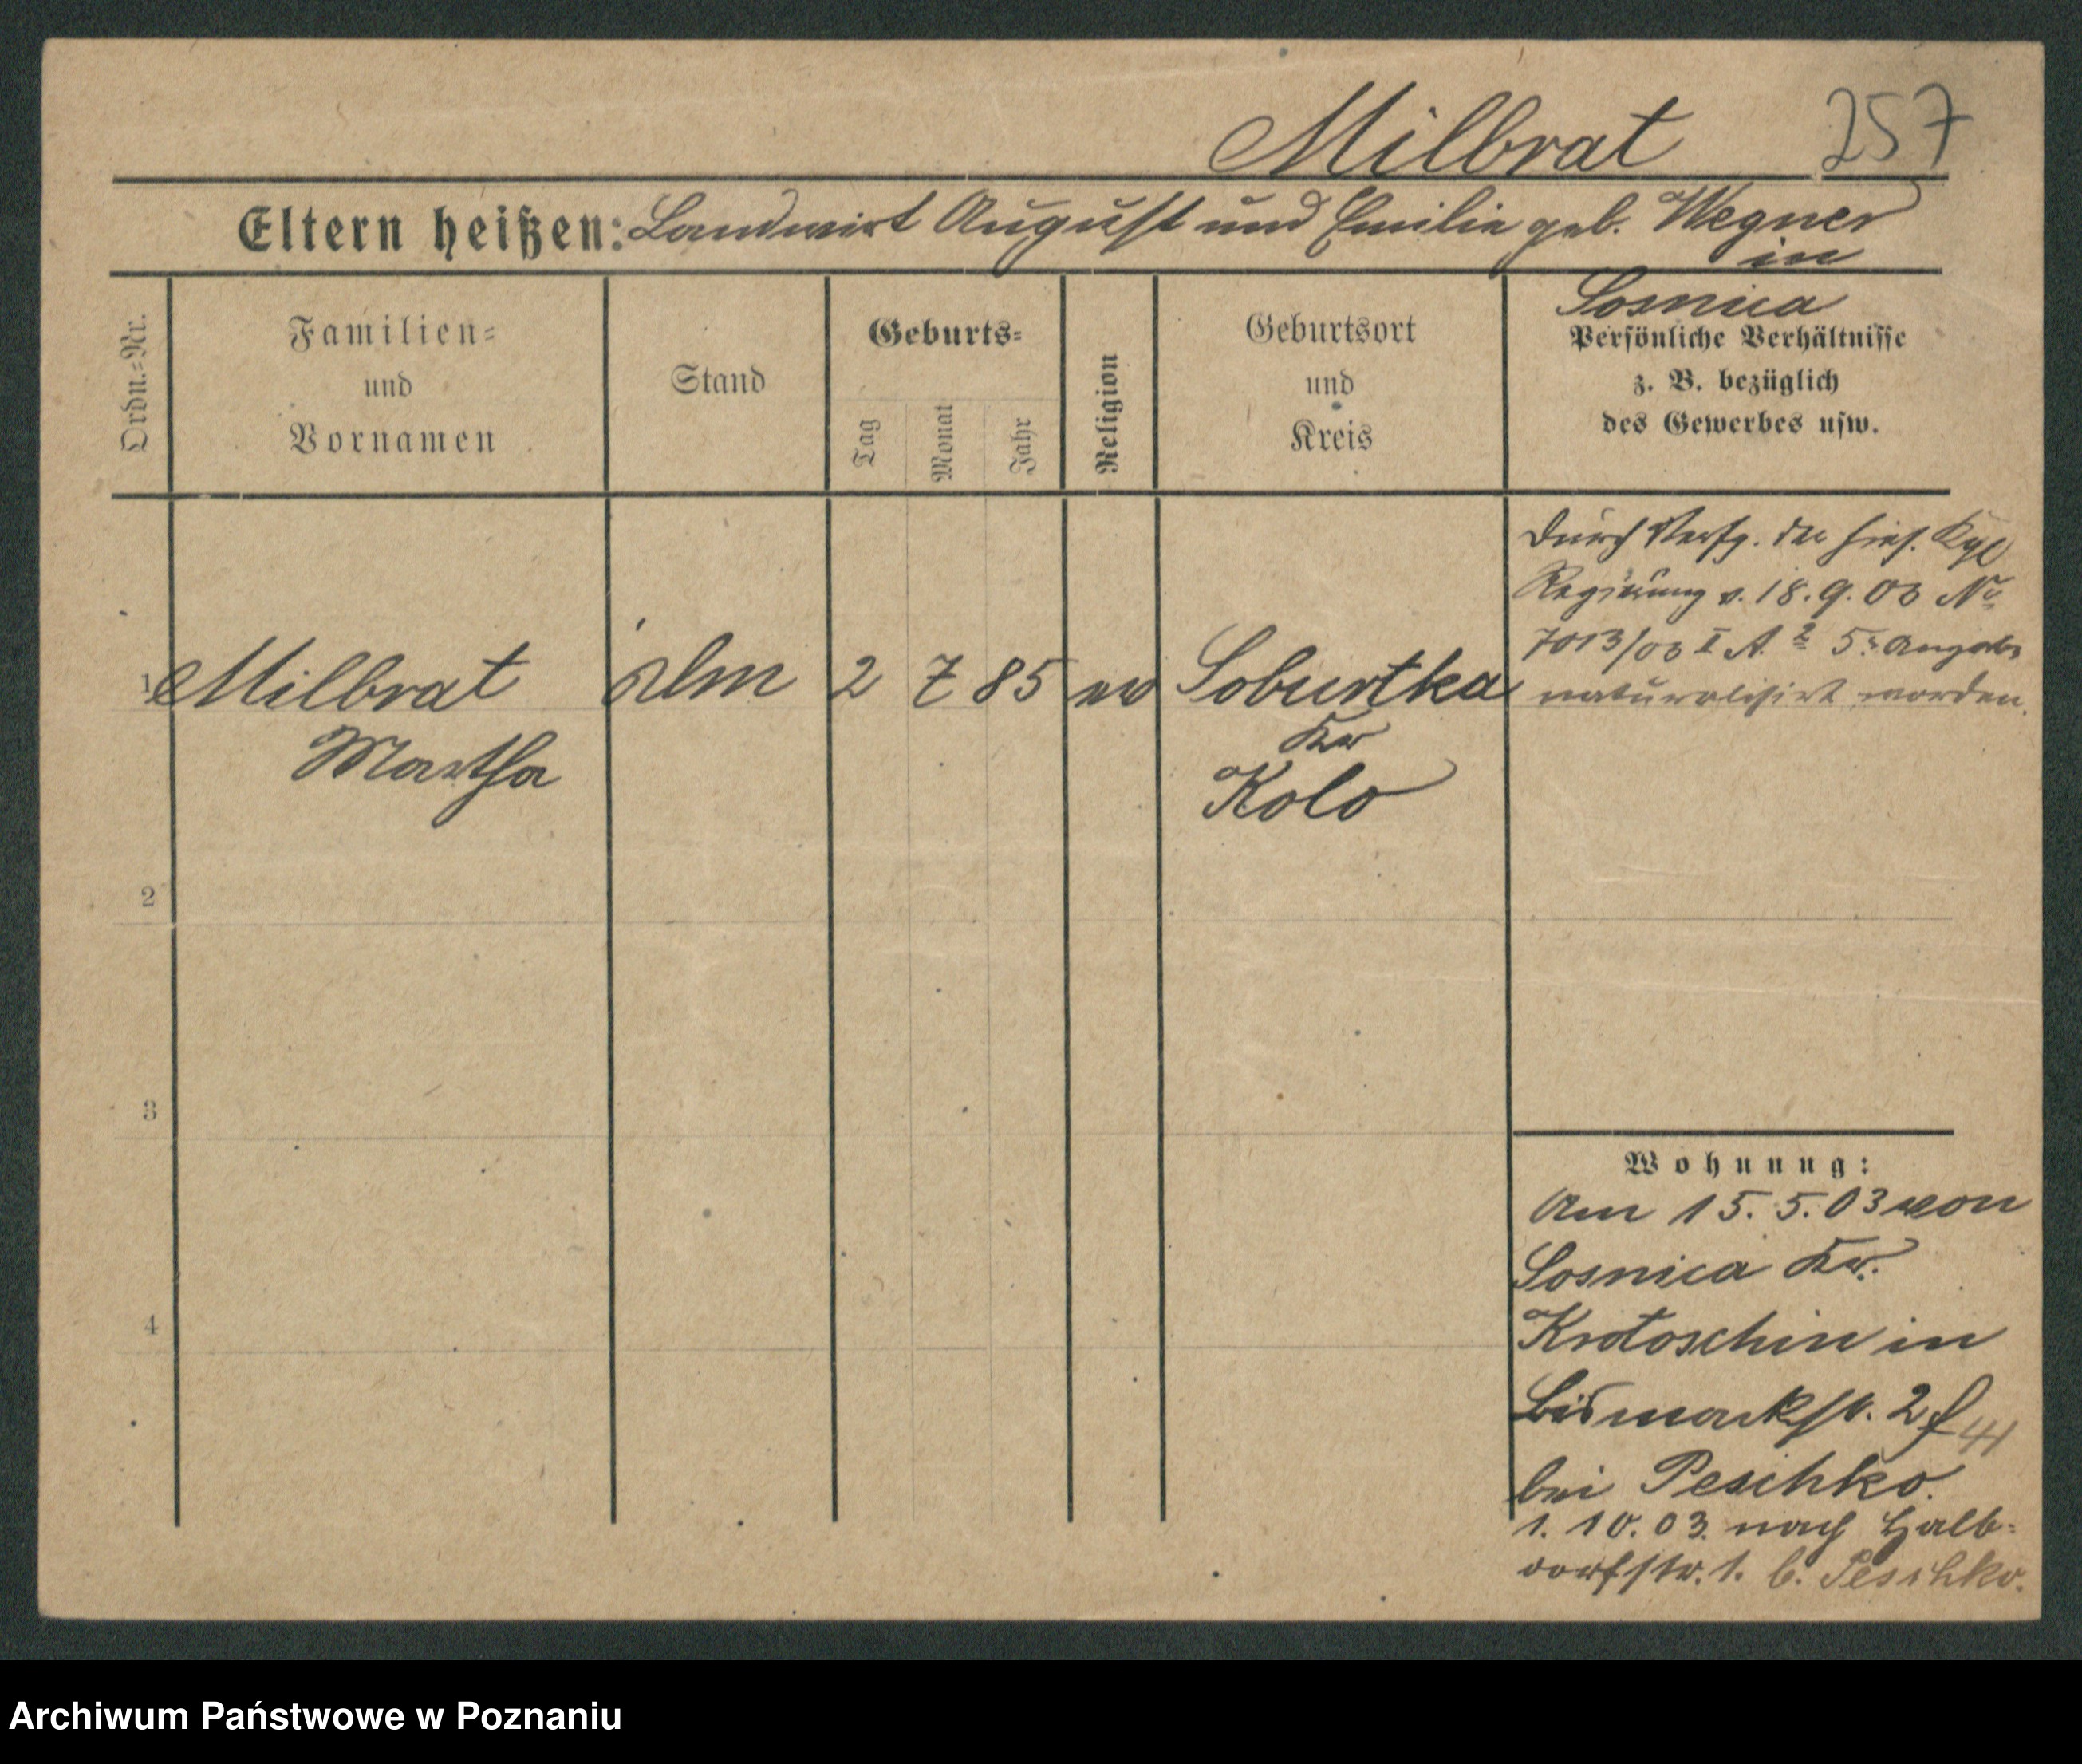 Milbrat 257
Eltern heißen: Landwirt August und Emilie geb. Wegner
in
Sosnica
Ordn.=Nr.
Familien=
und
Vornamen
Stand
Geburts=
Tag
Monat
Jahr
Religion
Geburtsort
und
Kreis
Persönliche Verhältnisse
z. B. bezüglich
des Gewerbes usw.
Durch Verfg. der hies. Kgl
Regierung v. 18. 9. 03 No
7013/03 I A.
naturalisirt worden.
1 Milbrat 2 7 85 ev Soburtka
Martha
Kr
Kolo
2
3
4
Wohnung:
Am 15. 5. 03 von
Sosnica Kr.
Krotoschin in
Bismarckstr. 2
bei Peschko.
1. 10. 03. nach Halb=
dorfstr. 1. b. Peschko.
Archiwum Państwowe w Poznaniu